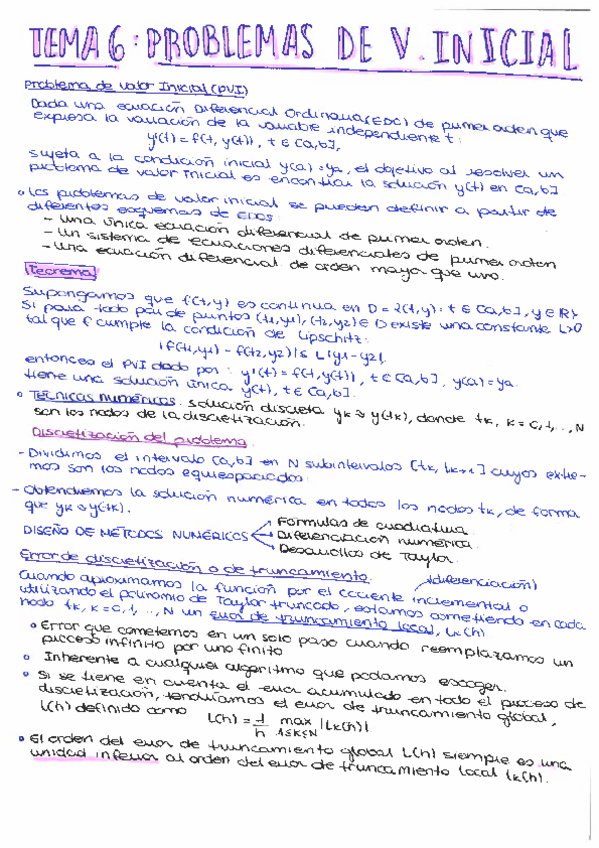 TEMA 6: PROBLEMAS DE V. INICIAL
Problema de valor Inicial (PVI)
Dada una ecuación Diferencial Ordinaria (EDO) de primer orden que
expresa la variación de la variable independiente t:
y'(t) = f(t, y(t)), t ∈ [a,b],
sujeta a la condición inicial y(a) = ya, el objetivo al resolver un
problema de valor inicial es encontrar la solución y(t) en [a,b]
• Los problemas de valor inicial se pueden definir a partir de
diferentes esquemas de EDOs:
- una única ecuación diferencial de primer orden.
- un sistema de ecuaciones diferenciales de primer orden
- una ecuación diferencial de orden mayor que uno.
Teorema
Supongamos que f(t,y) es continua en D = {(t,y): t ∈ [a,b], y ∈ R}
Si para todo par de puntos (t1,y1), (t2,y2) ∈ D existe una constante L>0
tal que f cumple la condición de Lipschitz:
|f(t1,y1) - f(t2,y2)| ≤ L|y1-y2|,
entonces el PVI dado por: y'(t) = f(t,y(t)), t ∈ [a,b], y(a) = ya.
tiene una solución única y(t), t ∈ [a,b].
• Técnicas numéricas: solución discreta yk ≈ y(tk), donde tk, k = 0,1,..,N
son los nodos de la discretización.
Discretización del problema
- Dividimos el intervalo [a,b] en N subintervalos [tk, tk+1] cuyos extre-
mos son los nodos equiespaciados
- Obtendremos la solución numérica en todos los nodos tk, de forma
que yk ≈ y(tk).
Fórmulas de cuadratura
DISEÑO DE MÉTODOS NUMÉRICOS Diferenciación numérica.
Desarrollos de Taylor.
Error de discretización o de truncamiento
(diferenciación)
Cuando aproximamos la función por el cociente incremental o
utilizando el polinomio de Taylor truncado, estamos cometiendo en cada
nodo tk, k = 0,1, .., N un error de truncamiento local, Lk(h)
• Error que cometemos en un solo paso cuando reemplazamos un
proceso infinito por uno finito
• Inherente a cualquier algoritmo que podamos escoger.
• Si se tiene en cuenta el error acumulado en todo el proceso de
discretización, tendríamos el error de truncamiento global,
L(h) definido como
L(h) = 1/h max 1≤k≤N |Lk(h)|
• El orden del error de truncamiento global L(h) siempre es una
unidad inferior al orden del error de truncamiento local Lk(h).